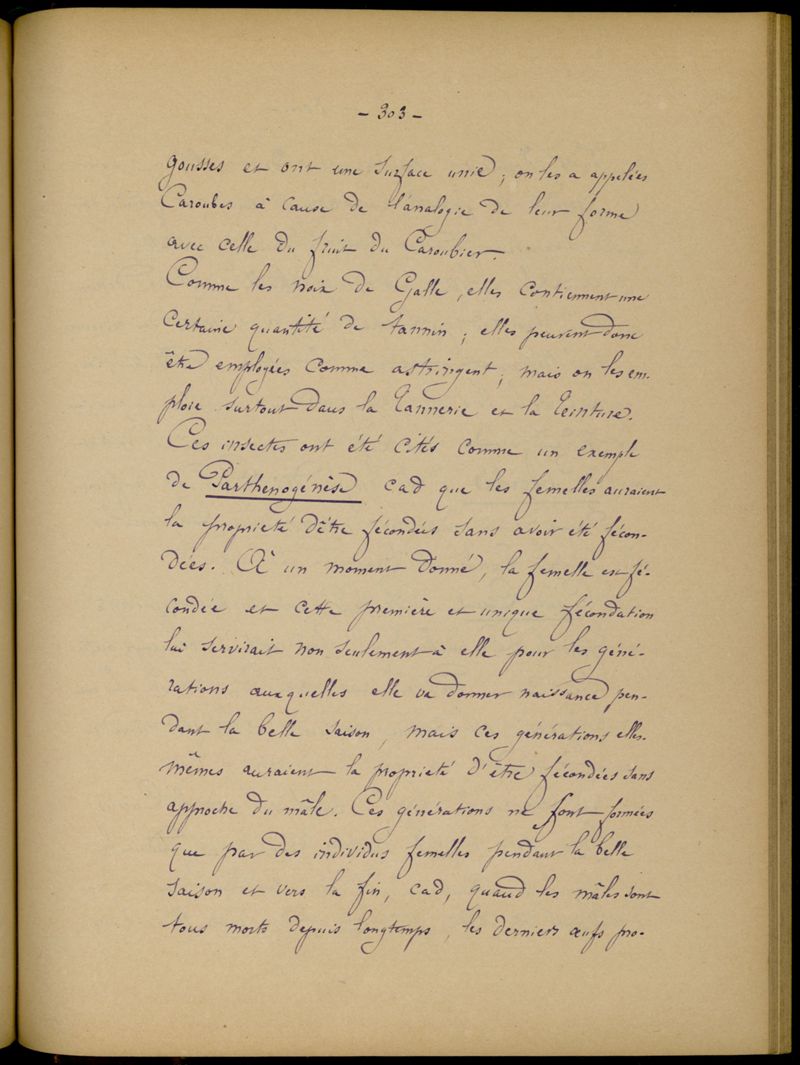 - 303 -
gousses et ont une surface unie ; on les a appelées
Caroubes à cause de l'analogie de leur forme
avec celle du fruit du Caroubier.
Comme les noix de Galle, elles contiennent une
certaine quantité de tannin ; elles peuvent donc
être employées comme astringent ; mais on les em-
ploie surtout dans la Tannerie et la Teinture.
Ces insectes ont été cités comme un exemple
de Parthenogénèse cad que les femelles auraient
la proprieté d'être fécondées sans avoir été fécon-
dées. À un moment donné, la femelle est fé-
condée et cette première et unique fécondation
lui servirait non seulement à elle pour les géné-
rations auxquelles elle va donner naissance pen-
dant la belle saison, mais ces générations elles-
mêmes auraient la proprieté d'être fécondées sans
approche du mâle. Ces générations ne sont formées
que par des individus femelles pendant la belle
saison et vers la fin, cad, quand les mâles sont
tous morts depuis longtemps, les derniers œufs pro-